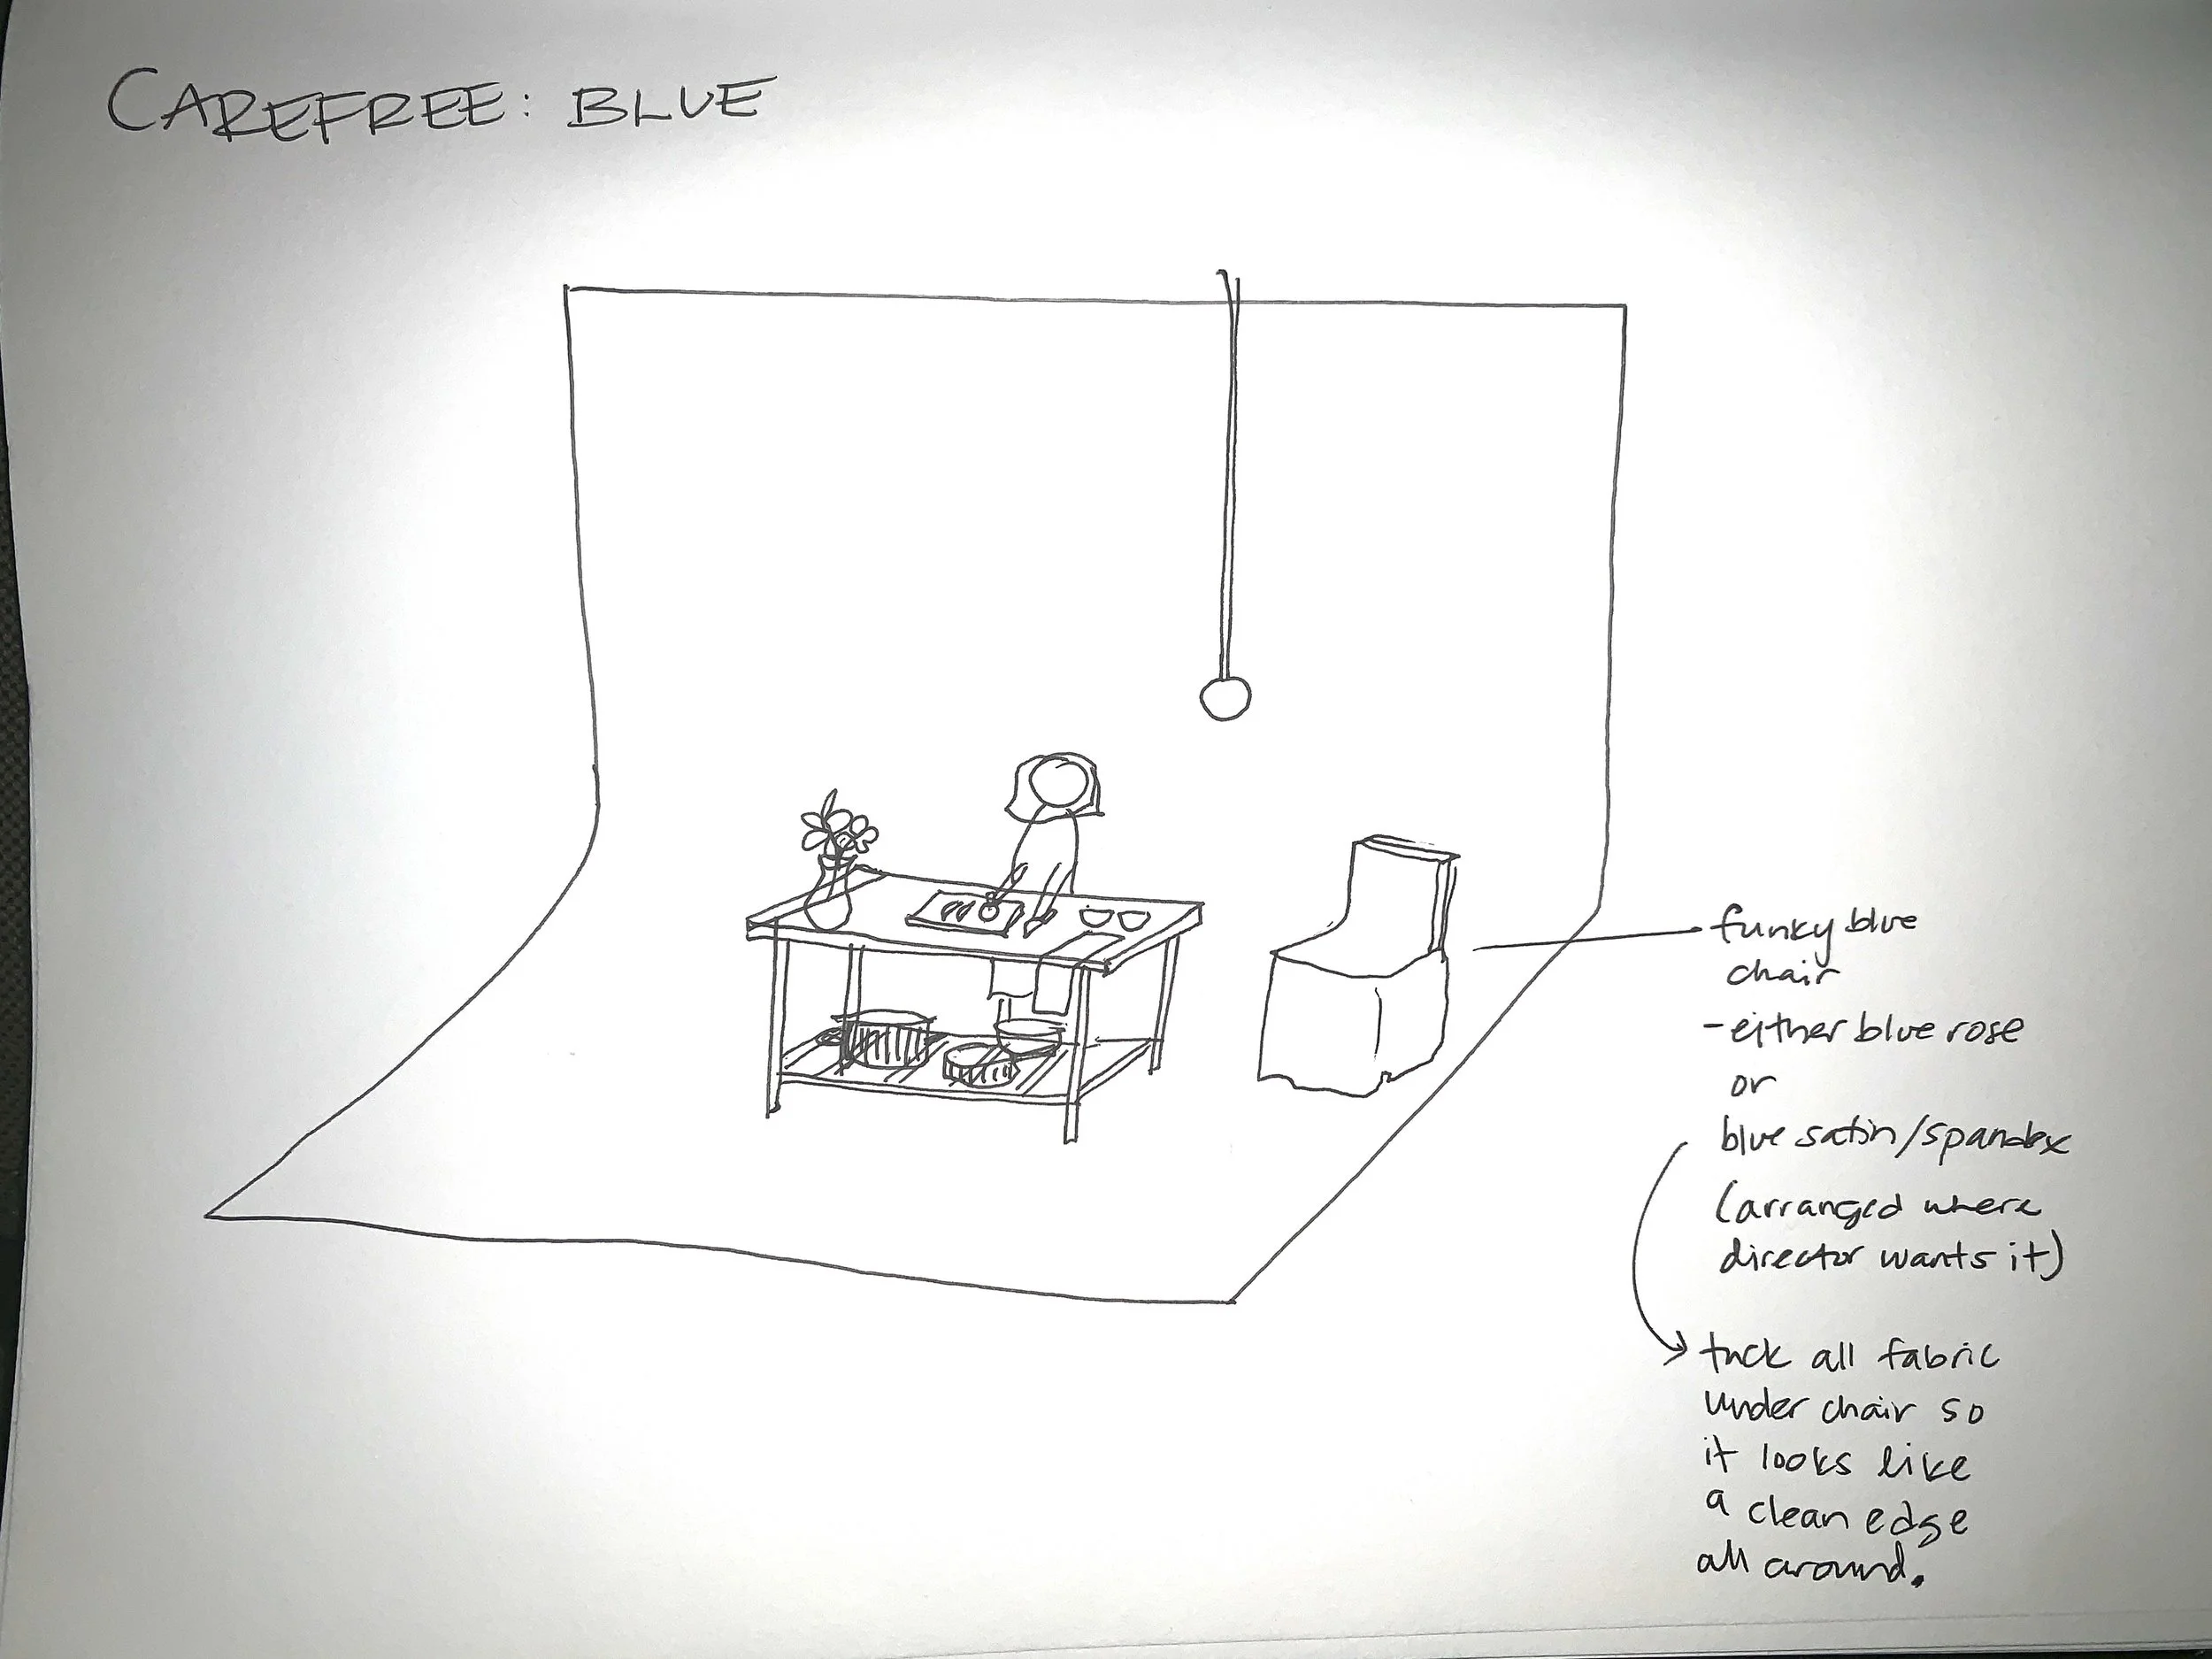 CAREFREE: BLUE
funky blue
chair
- either blue rose
or
blue satin/spandex
(arranged where
director wants it)
tuck all fabric
under chair so
it looks like
a clean edge
all around.